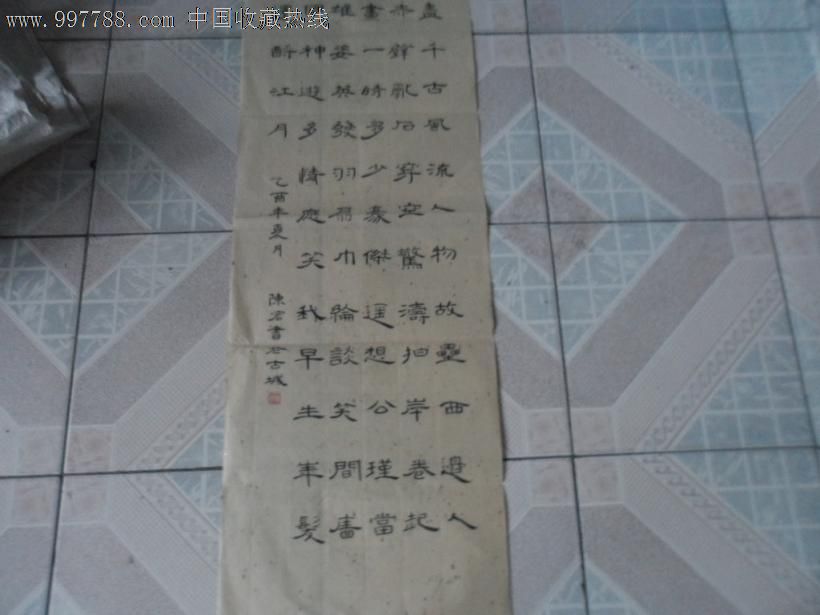 www.997788.com 中国收藏热线
盡千古風流人物故壘西邊人
赤 亂石穿空驚濤拍岸卷起
畫一時多少豪傑遥想公瑾當
雄姿英發羽扇巾綸談笑間
神遊多情應笑我早生年髮
酹江月 乙酉年夏月 陳 書於古城